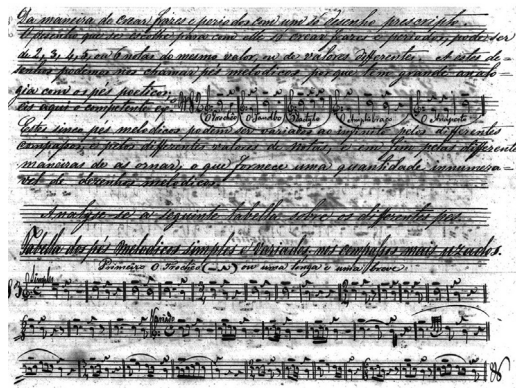 Da maneira de crear frazes e periodos com um só desenho prescripto.
O desenho que se escolhe para com elle se crear frazes e periodos, pode ser
de 2, 3, 4, 5, ou 6 notas do mesmo valor, ou de valores differentes. A estes de=
senhos podemos nos chamar pés melodicos porque tem grande analo=
gia com os pés poeticos.
eis aqui o competente ex:
O Trocheo O Jambo O Dactylo O Amphibraco O Anapesto
Estes sinco pés melodicos podem ser variados ao infinito pelos differentes
compassos, e pelos differentes valores de notas, e em fim pelas differentes
maneiras de as ornar, o que fornece uma quantidade innumera=
vel de dezenhos melodicos.
Analyse-se a seguinte tabella sobre os differentes pés.
Tabella dos pés melodicos simplices e variados, nos compassos mais uzados.
Primeiro O Trocheo ou uma longa e uma breve
Simples
Variado